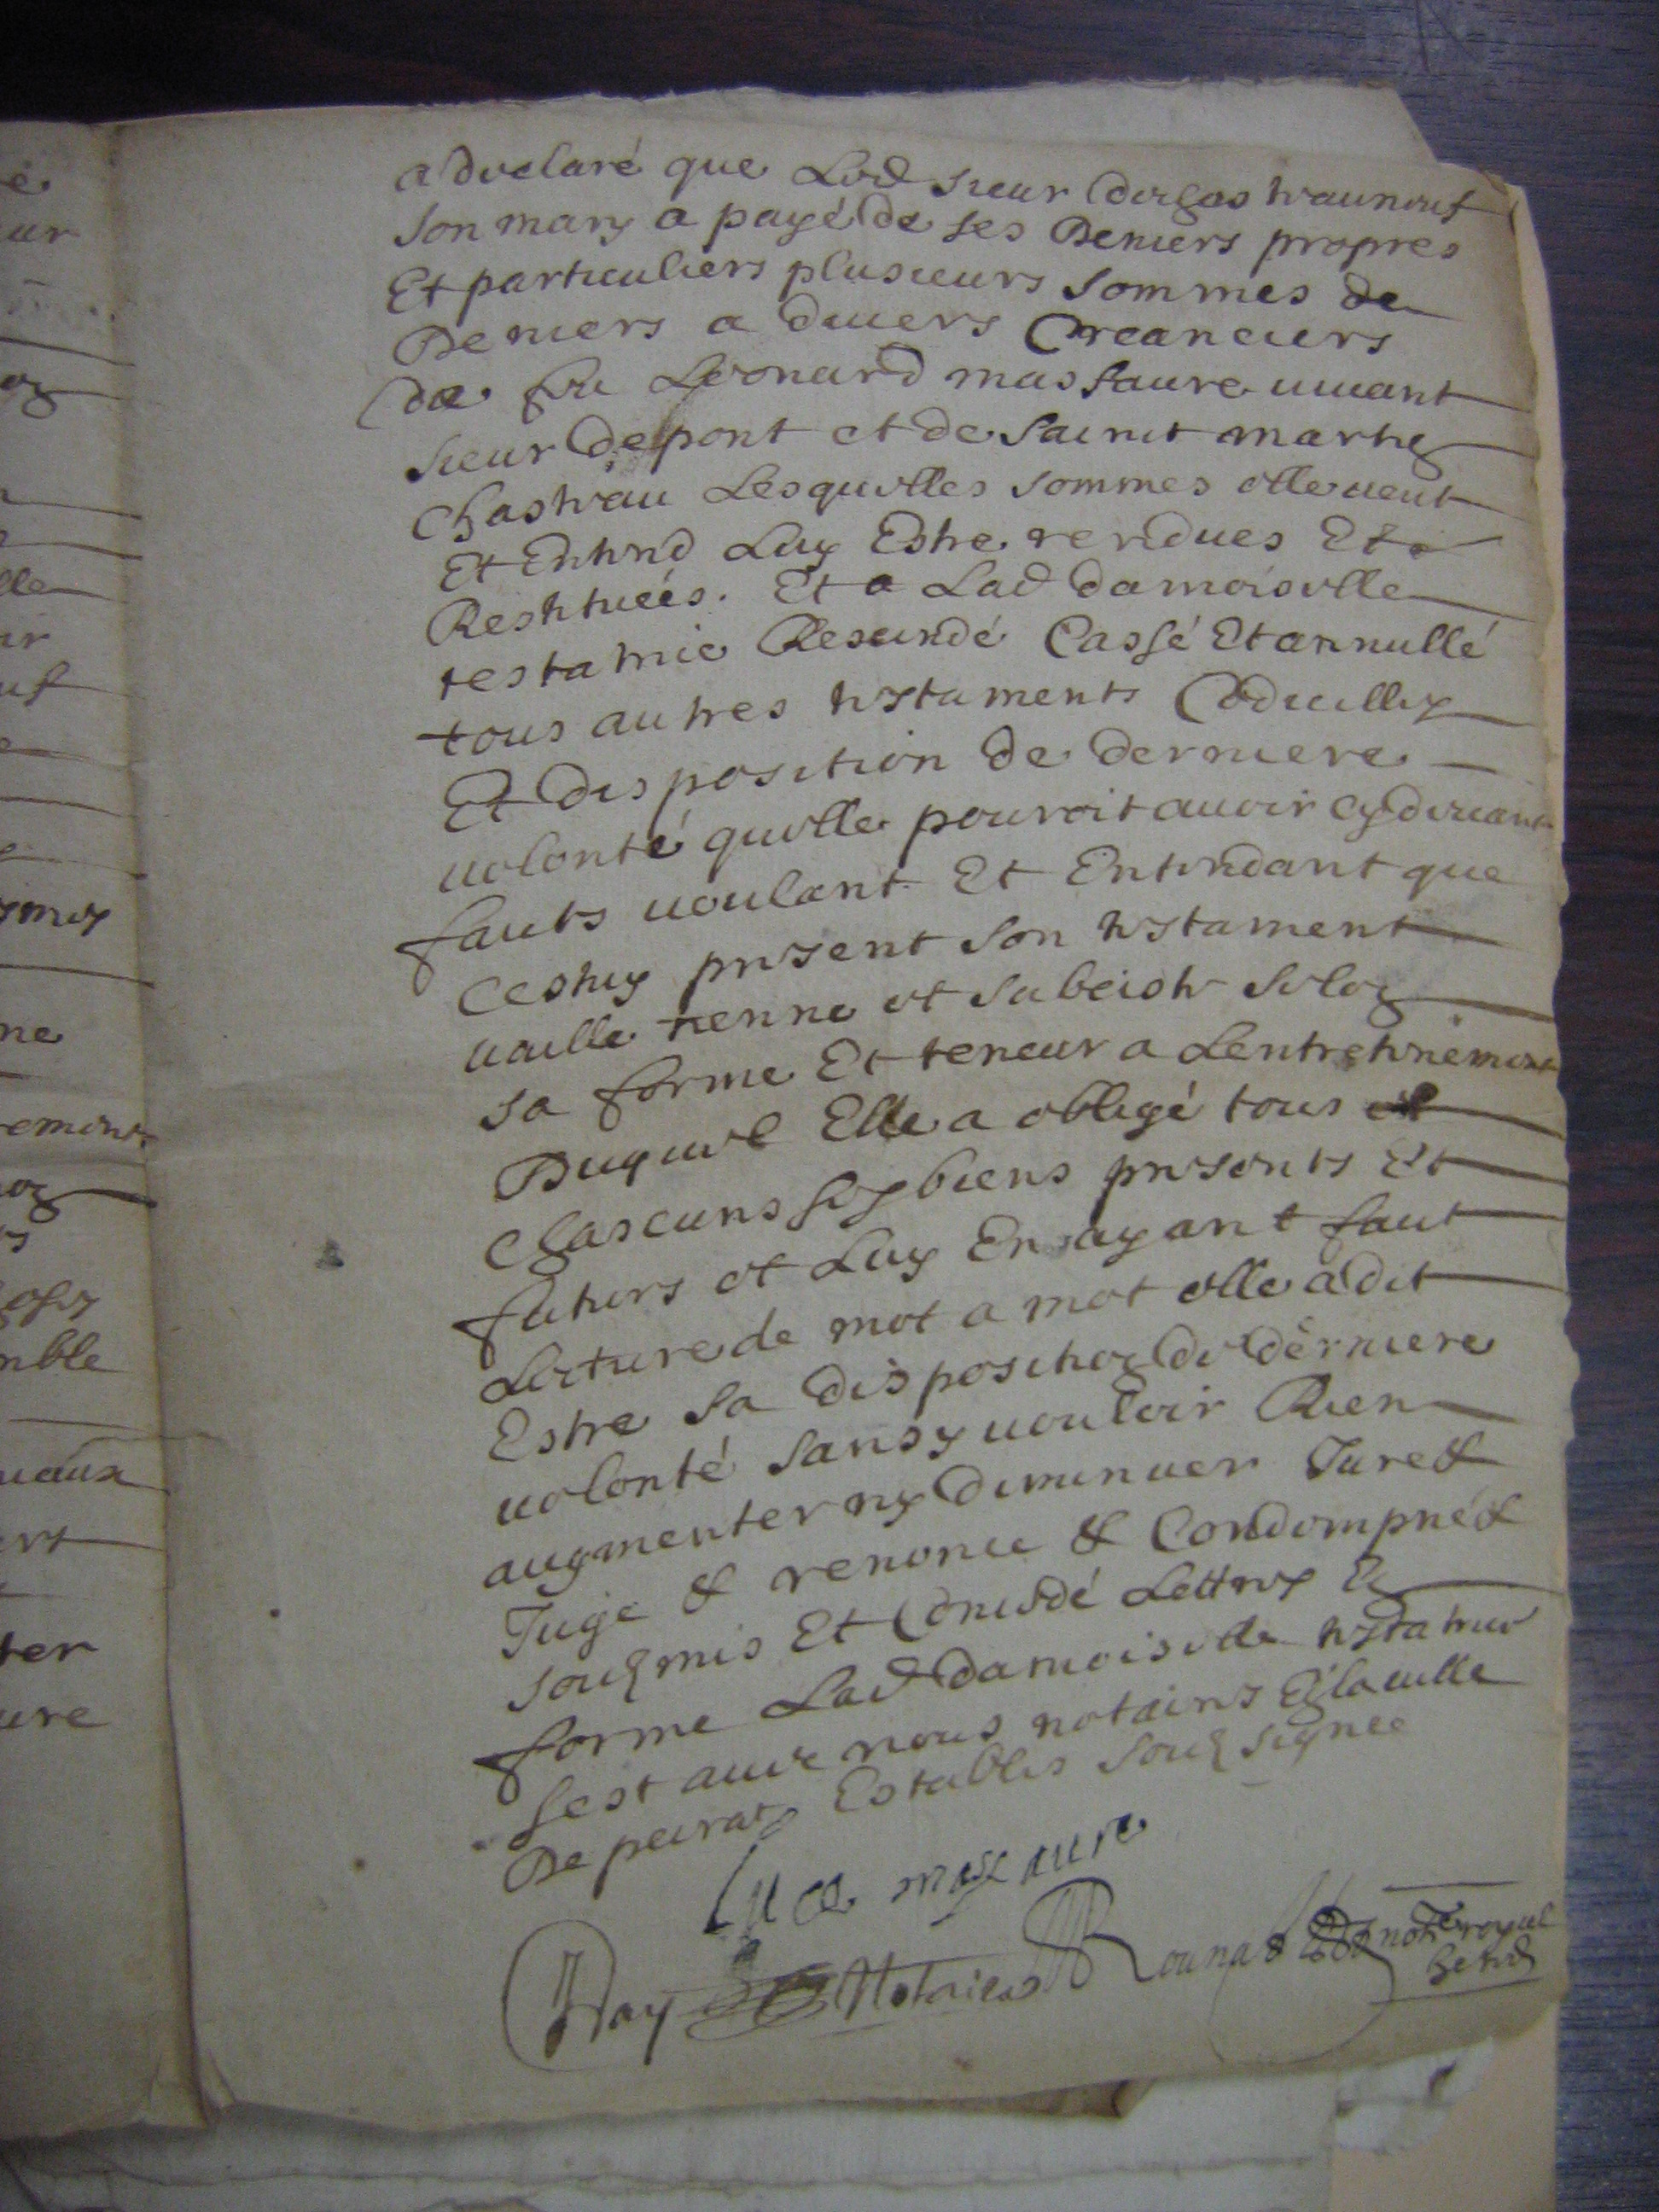 a declaré que Lod sieur
son mary a payé de ses Deniers propres
Et particuliers plusieurs sommes de
Deniers a divers Creanciers
de feu Leonard massaure vivant
sieur de pont et de Sainct marhe
Chasteau Lesquelles sommes elle veut
Et Entend Luy Estre rendues Et
Restituées. Et a Lad damoiselle
testatrice Rescindé Cassé Et annullé
tous autres testaments Codicilles
Et disposition de derniere
volonté quelle pouroit avoir cy devant
faicts voulant Et Entendant que
Cestuy present son testament
vaille tienne et subciste selon
sa forme Et teneur a Lentretenement
Duquel Elle a obligé tous et
Chascuns ses biens presents Et
futurs et Luy En ayant faict
Lecture de mot a mot elle a dit
Estre sa disposition de derniere
volonté sans y vouloir Rien
augmenter ny diminuer Juré &
Jugé & renoncé & Condempné &
soubmis Et Concedé Lettres En
forme Lad damoiselle testatrice
sest avec nous notaires En la ville
De peirat Establis soubsignee
Luce massaure
Notaire not re royal